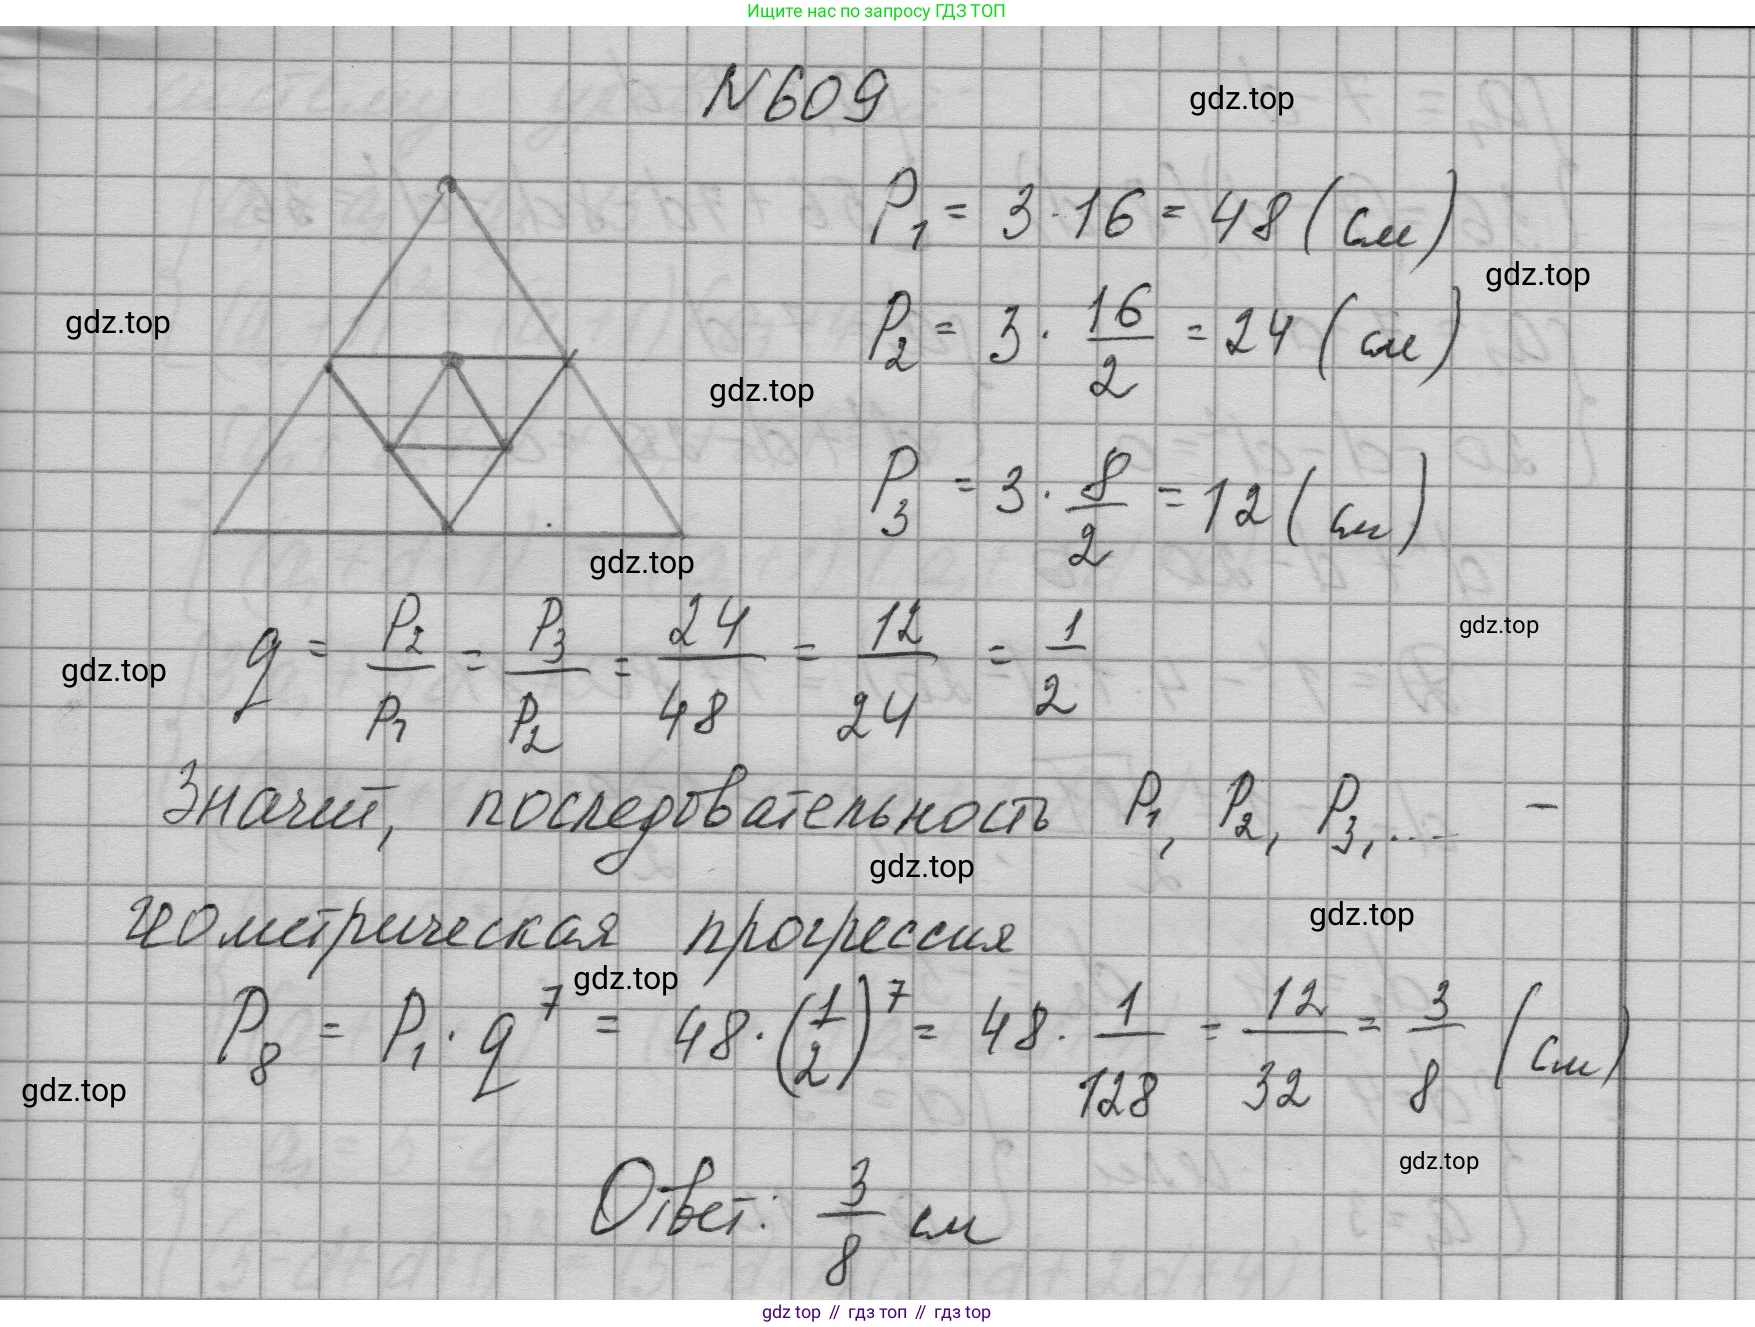 Ищите нас по запросу ГДЗ ТОП
N 609
gdz.top
P₁ = 3 · 16 = 48 (см)
gdz.top
gdz.top
P₂ = 3 · 16/2 = 24 (см)
gdz.top
P₃ = 3 · 8/2 = 12 (см)
gdz.top
gdz.top
q = P₂/P₁ = P₃/P₂ = 24/48 = 12/24 = 1/2
gdz.top
Значит, последовательность P₁, P₂, P₃, ... –
gdz.top
геометрическая прогрессия
gdz.top
gdz.top
P₈ = P₁ · q⁷ = 48 · (1/2)⁷ = 48 · 1/128 = 12/32 = 3/8 (см)
gdz.top
gdz.top
Ответ: 3/8 см
gdz top // гдз топ // гдз top